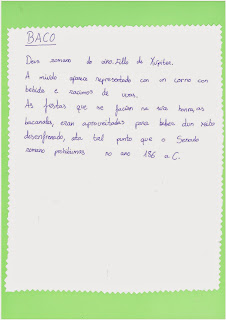 BACO
Deus romano do viño. Fillo de Xúpiter.
A miúdo aparece representado con un corno con
bebida e racimos de uvas.
As festas que se facían na súa honra, as
bacanales, eran aproveitadas para beber dun xeito
desenfreado, ata tal punto que o Senado
romano prohibiunas no ano 186 a.C.